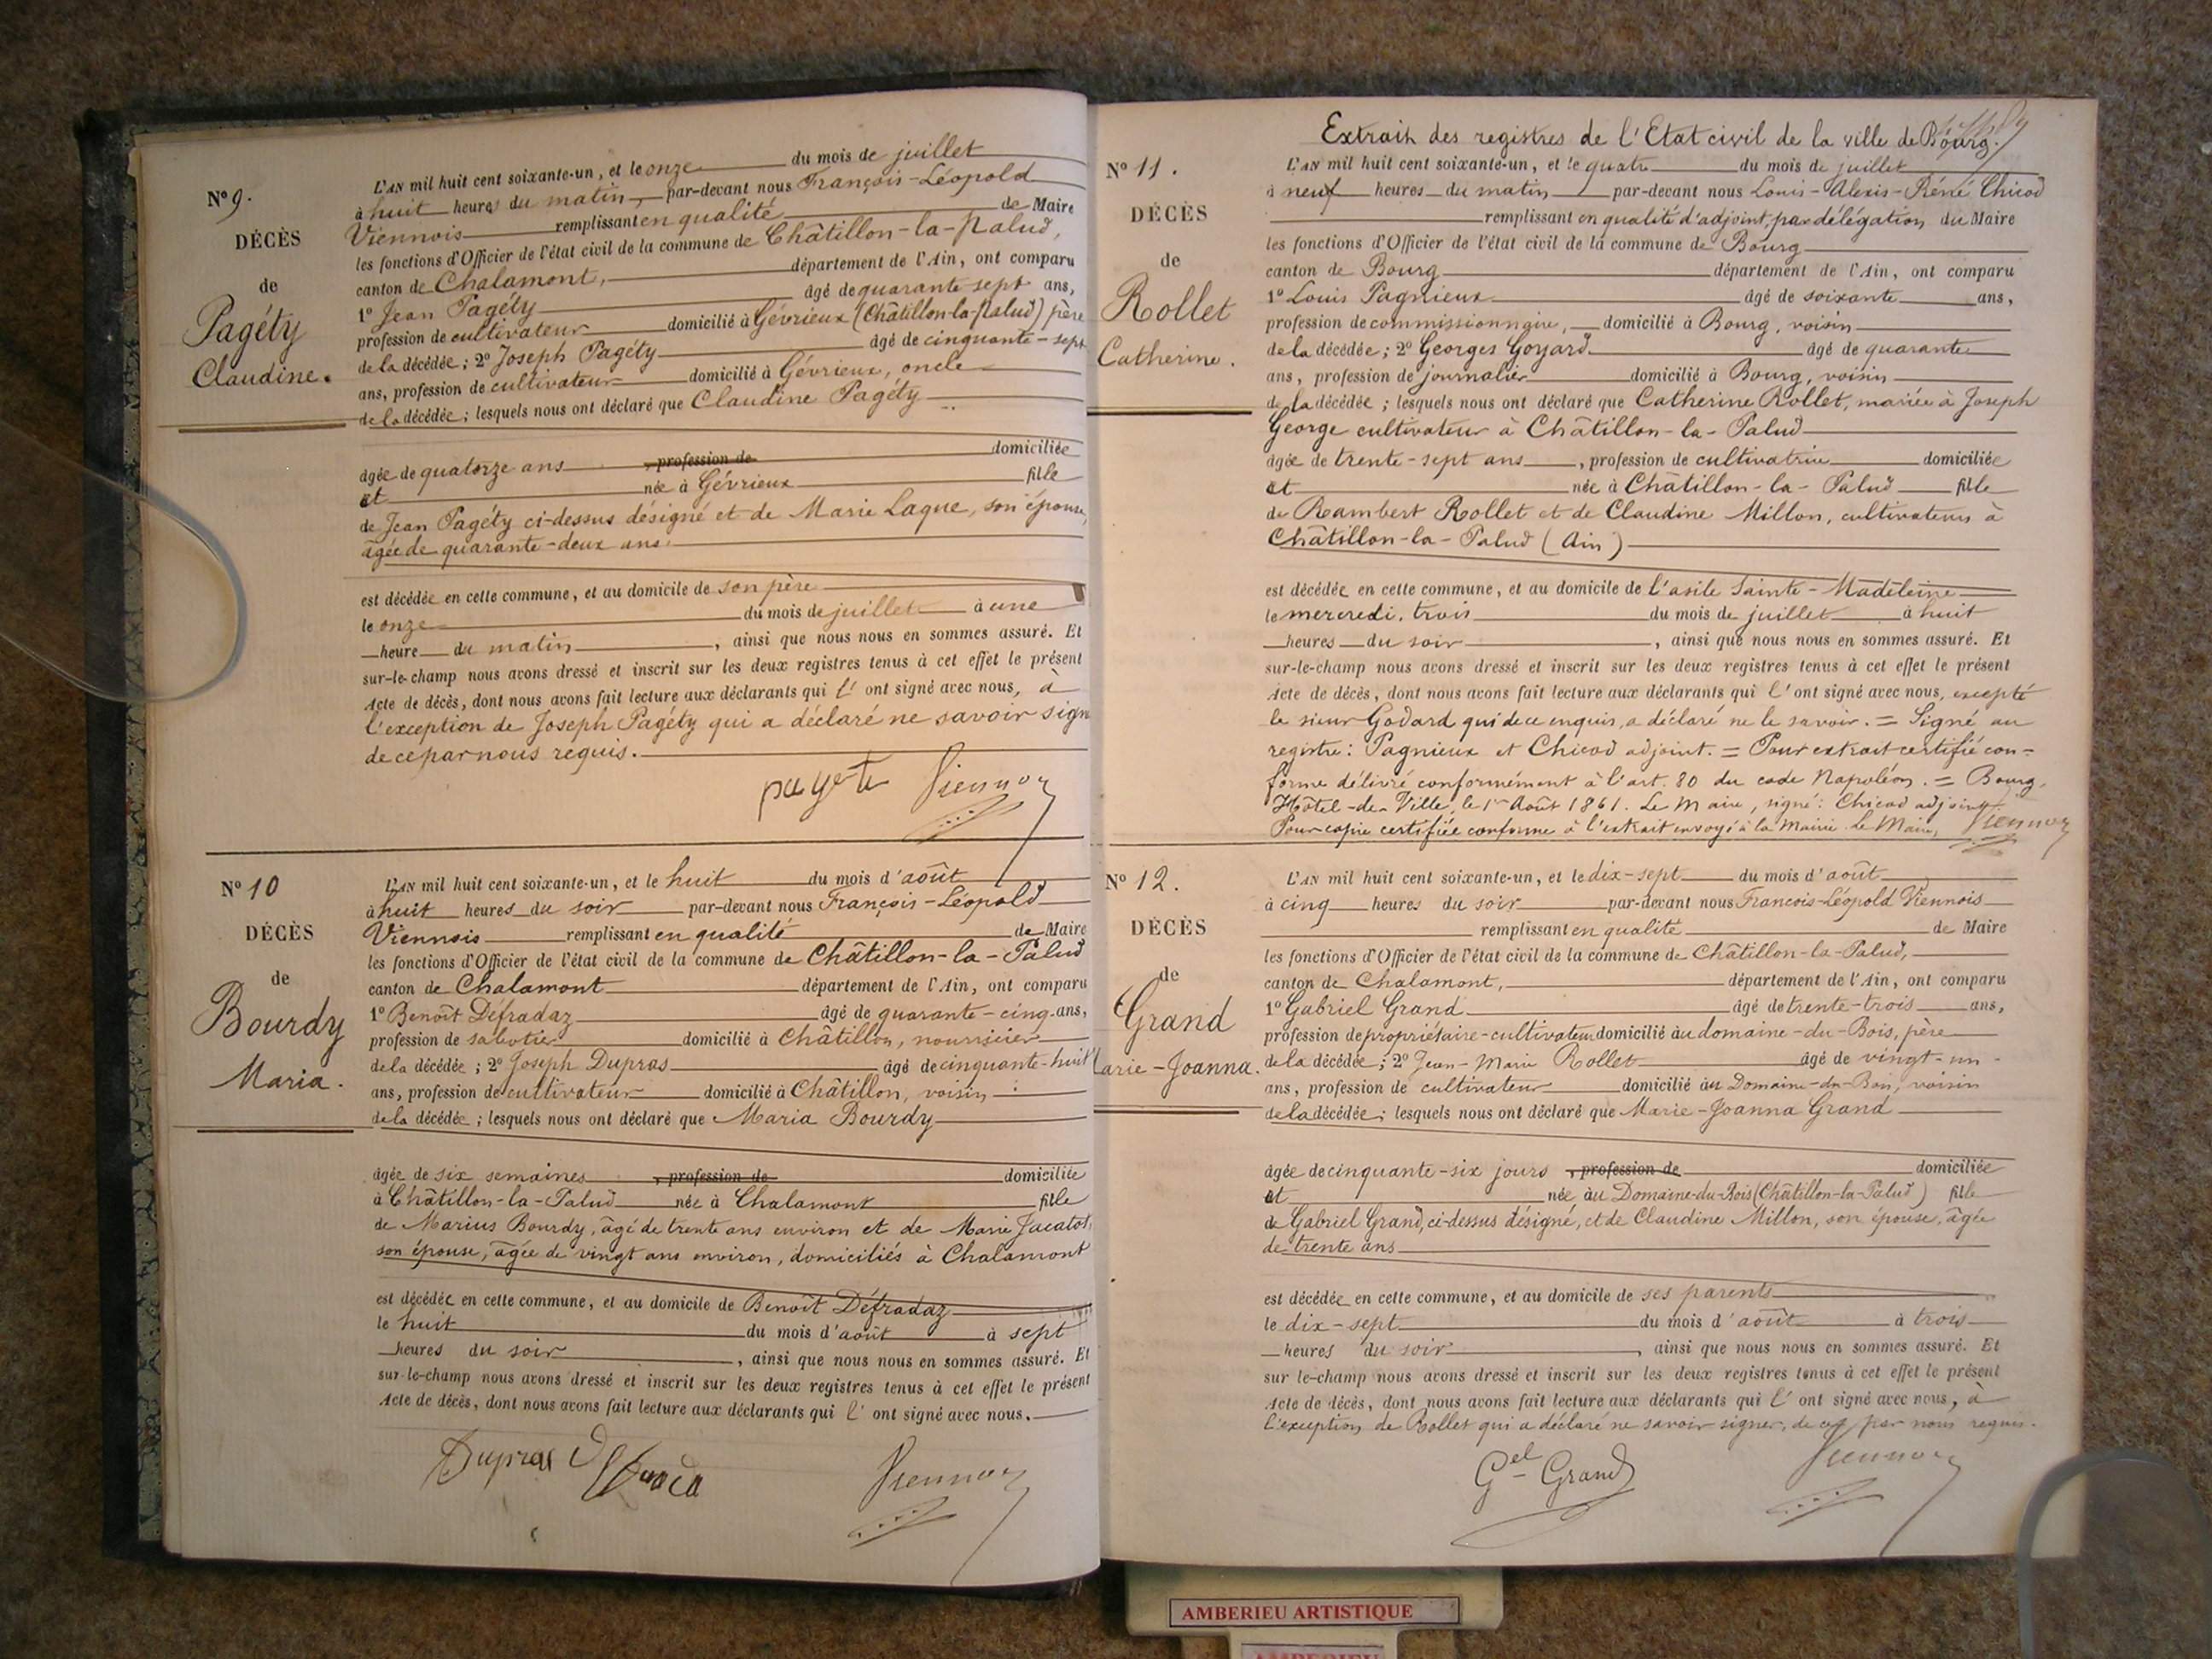 Nº 9.
DÉCÈS
de
Pagéty
Claudine.
L'AN mil huit cent soixante-un, et le onze du mois de juillet
à huit heures du matin, par-devant nous François-Léopold
Viennois remplissant en qualité de Maire
les fonctions d'Officier de l'état civil de la commune de Châtillon-la-Palud,
canton de Chalamont, département de l'Ain, ont comparu
1º Jean Pagéty âgé de quarante sept ans,
profession de cultivateur domicilié à Gévrieux (Châtillon-la-Palud) père
de la décédée; 2º Joseph Pagéty âgé de cinquante-sept
ans, profession de cultivateur domicilié à Gévrieux, oncle
de la décédée; lesquels nous ont déclaré que Claudine Pagéty
âgée de quatorze ans, profession de domiciliée
et née à Gévrieux fille
de Jean Pagéty ci-dessus désigné et de Marie Laque, son épouse,
âgée de quarante-deux ans.
est décédée en cette commune, et au domicile de son père
le onze du mois de juillet à une
heure du matin, ainsi que nous nous en sommes assuré. Et
sur-le-champ nous avons dressé et inscrit sur les deux registres tenus à cet effet le présent
Acte de décès, dont nous avons fait lecture aux déclarants qui l'ont signé avec nous, à
l'exception de Joseph Pagéty qui a déclaré ne savoir sign
de ce par nous requis.
Viennois
Nº 10
DÉCÈS
de
Bourdy
Maria.
L'AN mil huit cent soixante-un, et le huit du mois d'août
à huit heures du soir par-devant nous François-Léopold
Viennois remplissant en qualité de Maire
les fonctions d'Officier de l'état civil de la commune de Châtillon-la-Palud
canton de Chalamont département de l'Ain, ont comparu
1º Benoît Défradaz âgé de quarante-cinq ans,
profession de sabotier domicilié à Châtillon, nourricier
de la décédée; 2º Joseph Dupras âgé de cinquante-huit
ans, profession de cultivateur domicilié à Châtillon, voisin
de la décédée; lesquels nous ont déclaré que Maria Bourdy
âgée de six semaines, profession de domiciliée
à Châtillon-la-Palud née à Chalamont fille
de Marius Bourdy, âgé de trente ans environ et de Marie Jacatot,
son épouse, âgée de vingt ans environ, domiciliés à Chalamont
est décédée en cette commune, et au domicile de Benoît Défradaz
le huit du mois d'août à sept
heures du soir, ainsi que nous nous en sommes assuré. Et
sur-le-champ nous avons dressé et inscrit sur les deux registres tenus à cet effet le présent
Acte de décès, dont nous avons fait lecture aux déclarants qui l'ont signé avec nous.
Dupras Viennois
Extrait des registres de l'Etat civil de la ville de Bourg.
Nº 11.
DÉCÈS
de
Rollet
Catherine.
L'AN mil huit cent soixante-un, et le quatre du mois de juillet
à neuf heures du matin par-devant nous Louis-Alexis-Réné Chicod
remplissant en qualité d'adjoint, par délégation du Maire
les fonctions d'Officier de l'état civil de la commune de Bourg
canton de Bourg département de l'Ain, ont comparu
1º Louis Pagnieux âgé de soixante ans,
profession de commissionnaire, domicilié à Bourg, voisin
de la décédée; 2º Georges Goyard âgé de quarante
ans, profession de journalier domicilié à Bourg, voisin
de la décédée; lesquels nous ont déclaré que Catherine Rollet, mariée à Joseph
George cultivateur à Châtillon-la-Palud
âgée de trente-sept ans, profession de cultivatrice domiciliée
et née à Châtillon-la-Palud fille
de Rambert Rollet et de Claudine Millon, cultivateurs à
Châtillon-la-Palud (Ain)
est décédée en cette commune, et au domicile de l'asile Sainte-Madeleine
le mercredi, trois du mois de juillet à huit
heures du soir, ainsi que nous nous en sommes assuré. Et
sur-le-champ nous avons dressé et inscrit sur les deux registres tenus à cet effet le présent
Acte de décès, dont nous avons fait lecture aux déclarants qui l'ont signé avec nous, excepté
le sieur Godard qui de ce enquis, a déclaré ne le savoir. = Signé au
registre: Pagnieux et Chicod adjoint. = Pour extrait certifié con=
forme délivré conformément à l'art. 80 du code Napoléon. = Bourg,
Hôtel-de-Ville, le 1er Août 1861. Le Maire, signé: Chicod adjoint.
Pour copie certifiée conforme à l'extrait envoyé à la Mairie. Le Maire, Viennois
Nº 12.
DÉCÈS
de
Grand
Marie-Joanna.
L'AN mil huit cent soixante-un, et le dix-sept du mois d'août
à cinq heures du soir par-devant nous François-Léopold Viennois
remplissant en qualité de Maire
les fonctions d'Officier de l'état civil de la commune de Châtillon-la-Palud,
canton de Chalamont, département de l'Ain, ont comparu
1º Gabriel Grand âgé de trente-trois ans,
profession de propriétaire-cultivateur domicilié au domaine-du-Bois, père
de la décédée; 2º Jean-Marie Rollet âgé de vingt-un
ans, profession de cultivateur domicilié au Domaine-du-Bois, voisin
de la décédée; lesquels nous ont déclaré que Marie-Joanna Grand
âgée de cinquante-six jours, profession de domiciliée
et née au Domaine-du-Bois (Châtillon-la-Palud) fille
de Gabriel Grand, ci-dessus désigné, et de Claudine Millon, son épouse, âgée
de trente ans
est décédée en cette commune, et au domicile de ses parents
le dix-sept du mois d'août à trois
heures du soir, ainsi que nous nous en sommes assuré. Et
sur-le-champ nous avons dressé et inscrit sur les deux registres tenus à cet effet le présent
Acte de décès, dont nous avons fait lecture aux déclarants qui l'ont signé avec nous, à
l'exception de Rollet qui a déclaré ne savoir signer, de ce par nous requis.
Gel Grand Viennois
AMBERIEU ARTISTIQUE
AMBERIEU